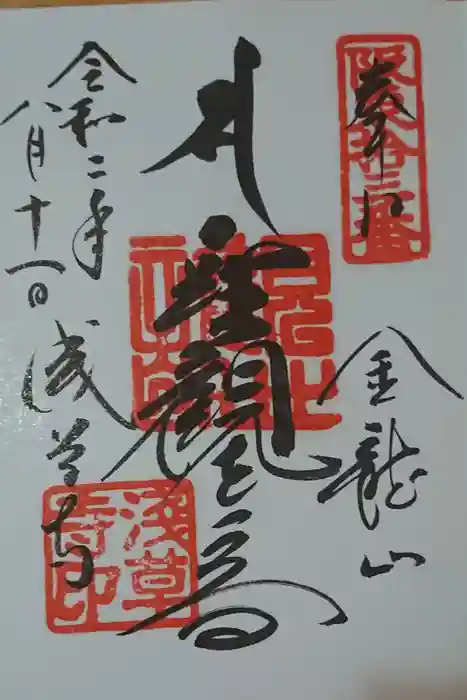 奉拝
阪東拾三番
金龍山
聖観世音
令和二年
八月十一日
浅草寺
浅草寺印